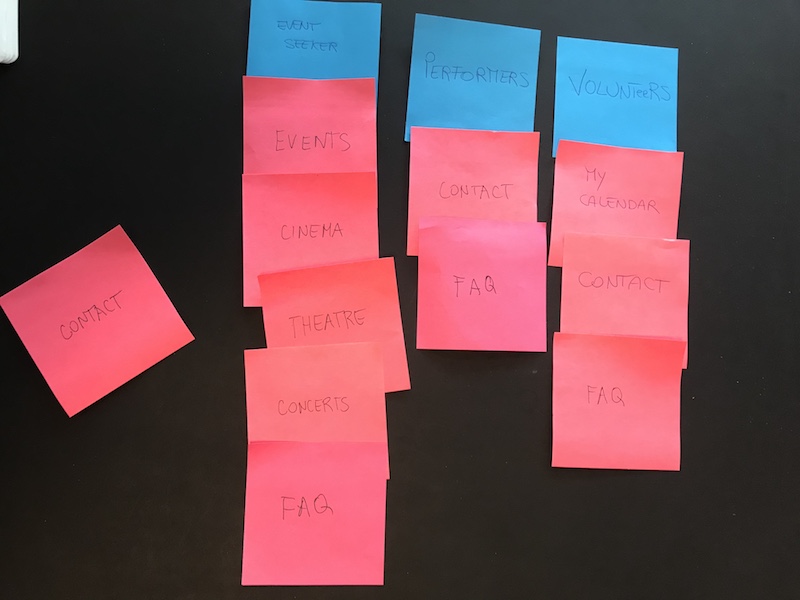 EVENT
SEEKER
EVENTS
CINEMA
THEATRE
CONCERTS
FAQ
PERFORMERS
CONTACT
FAQ
VOLUNTEERS
MY
CALENDAR
CONTACT
FAQ
CONTACT